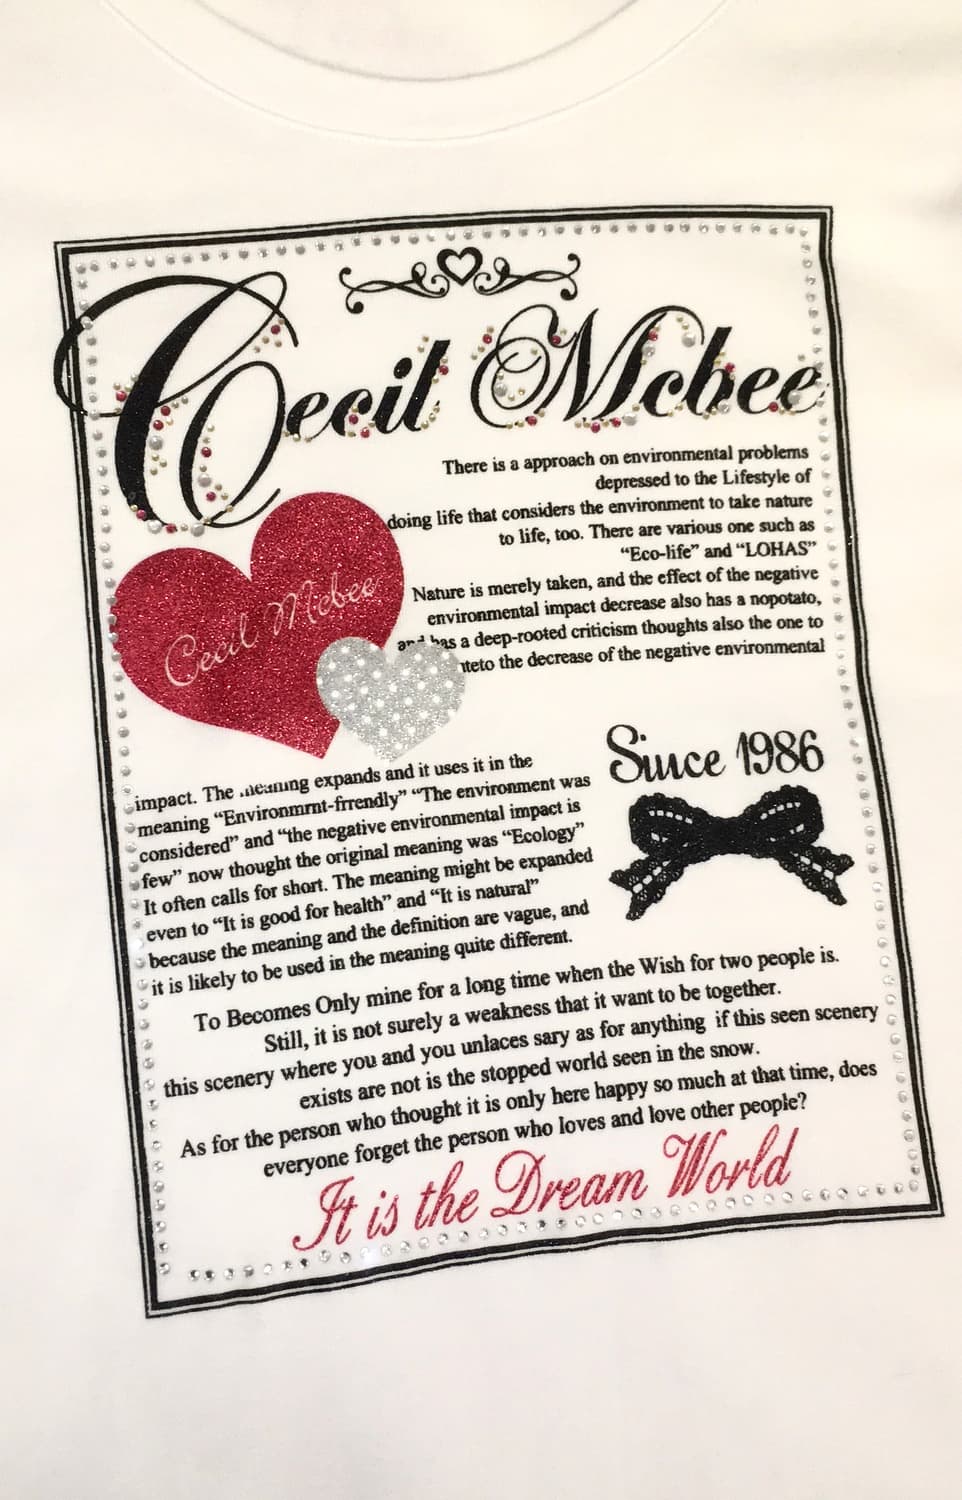 Cecil Mcbee
There is a approach on environmental problems
depressed to the Lifestyle of
doing life that considers the environment to take nature
to life, too. There are various one such as
“Eco-life” and “LOHAS”
Cecil Mcbee
Nature is merely taken, and the effect of the negative
environmental impact decrease also has a nopotato,
and has a deep-rooted criticism thoughts also the one to
the decrease of the negative environmental
Since 1986
impact. The meaning expands and it uses it in the
meaning “Environmrnt-frrendly” “The environment was
considered” and “the negative environmental impact is
few” now thought the original meaning was “Ecology”
It often calls for short. The meaning might be expanded
even to “It is good for health” and “It is natural”
because the meaning and the definition are vague, and
it is likely to be used in the meaning quite different.
To Becomes Only mine for a long time when the Wish for two people is.
Still, it is not surely a weakness that it want to be together.
this scenery where you and you unlaces sary as for anything if this seen scenery
exists are not is the stopped world seen in the snow.
As for the person who thought it is only here happy so much at that time, does
everyone forget the person who loves and love other people?
It is the Dream World